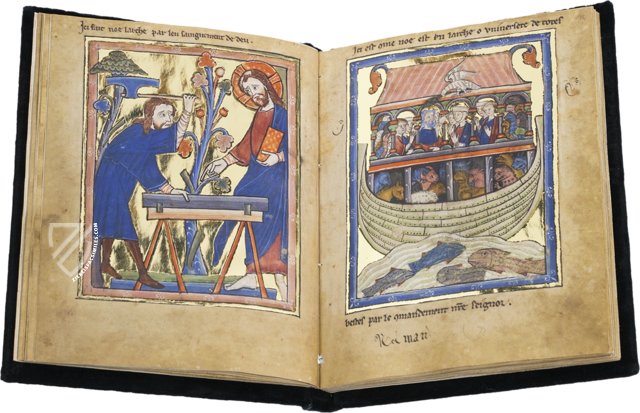 Ici fait noe larche par leu sanguement de deu.
Ici est que noe est en larche o vniversete de totes
bestes par le quaisdement nre seignor.
Noe mari
FACSIMILES.COM